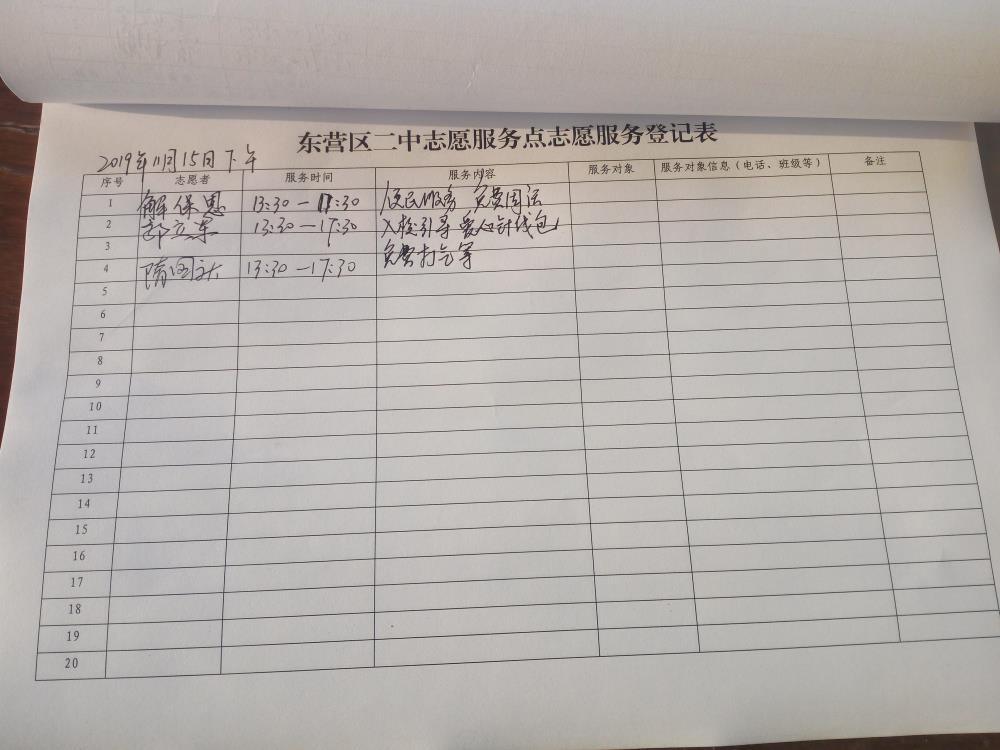 东营区二中志愿服务点志愿服务登记表
2019年11月15日下午
序号 志愿者 服务时间 服务内容 服务对象 服务对象信息（电话、班级等） 备注
1 解保恩 13:30-17:30 便民服务 免费
2 13:30-17:30 入校引导 爱心针线包
3 免费打气等
4 隋 13:30-17:30
5
6
7
8
9
10
11
12
13
14
15
16
17
18
19
20